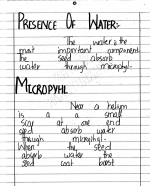 PRESENCE OF WATER:-
The water is the
most important component.
The seed absorb
water through micropyl-
MICROPYHL
Near a helium
is a a small
scar at one end
seed absorb water
through micropyhl-
When the seed
absorb water the
seed coat burst